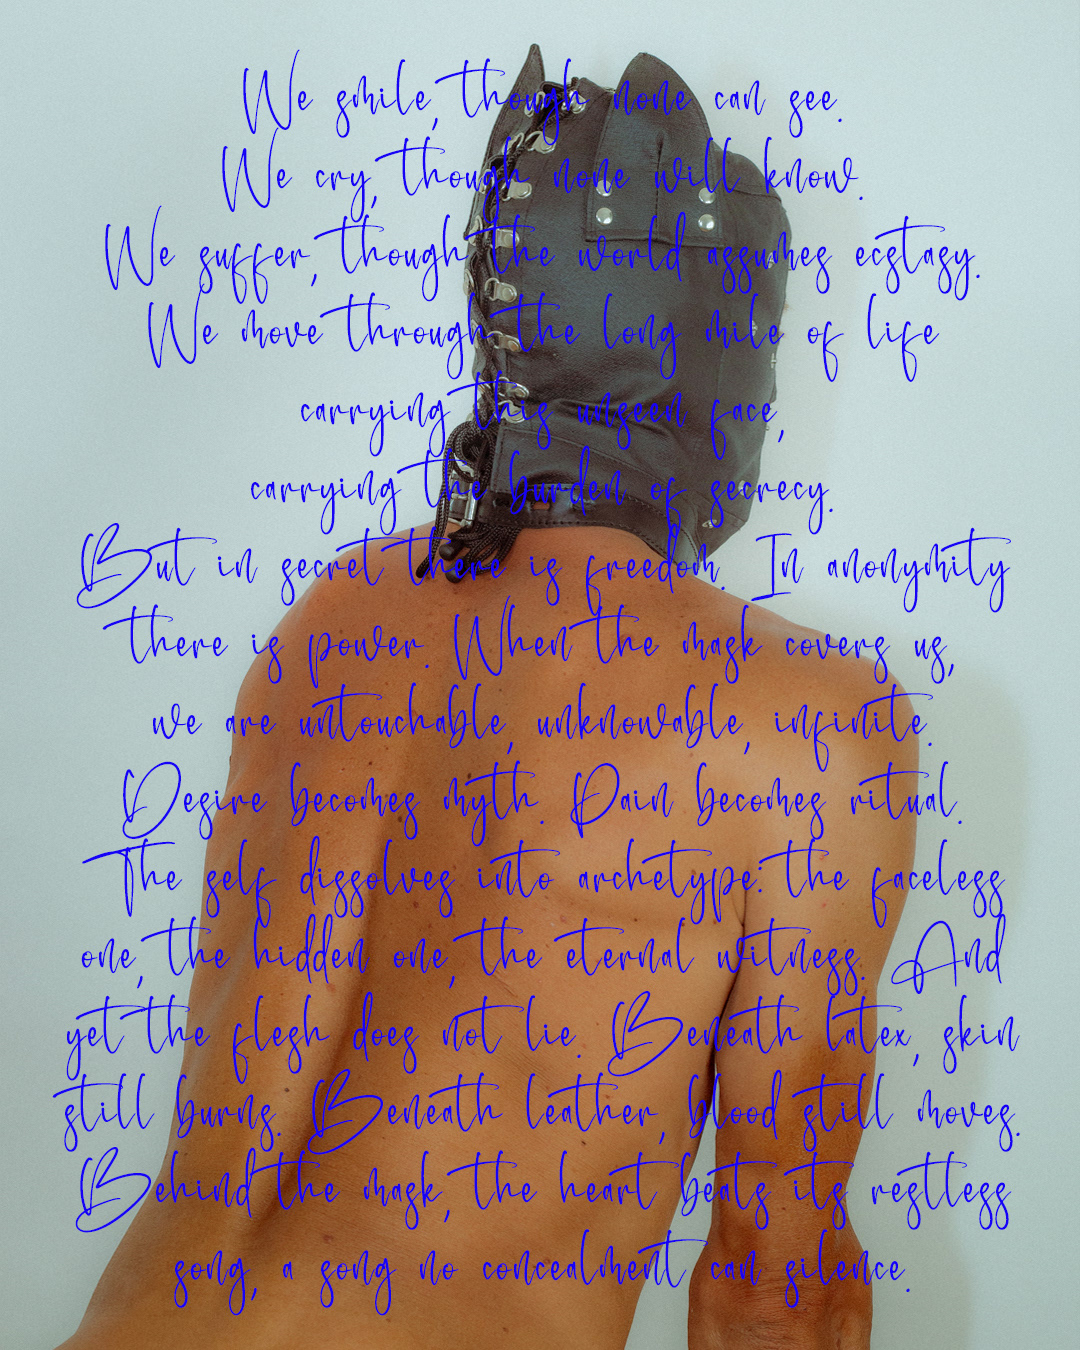 We smile, though none can see.
We cry, though none will know.
We suffer, though the world assumes ecstasy.
We move through the long mile of life
carrying this unseen face,
carrying the burden of secrecy.
But in secret there is freedom. In anonymity
there is power. When the mask covers us,
we are untouchable, unknowable, infinite.
Desire becomes myth. Pain becomes ritual.
The self dissolves into archetype: the faceless
one, the hidden one, the eternal witness. And
yet the flesh does not lie. Beneath latex, skin
still burns. Beneath leather, blood still moves.
Behind the mask, the heart beats its restless
song, a song no concealment can silence.